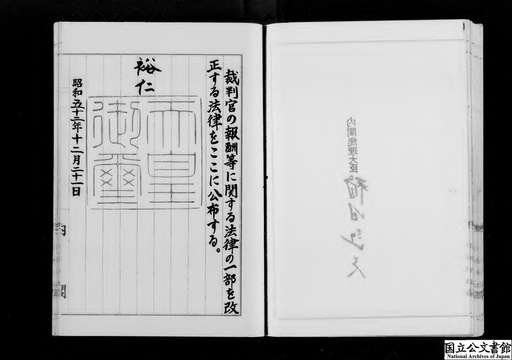 裁判官の報酬等に関する法律の一部を改
正する法律をここに公布する。
裕仁
天皇
御璽
昭和五十三年十二月二十一日
内閣
内閣総理大臣
国立公文書館
National Archives of Japan